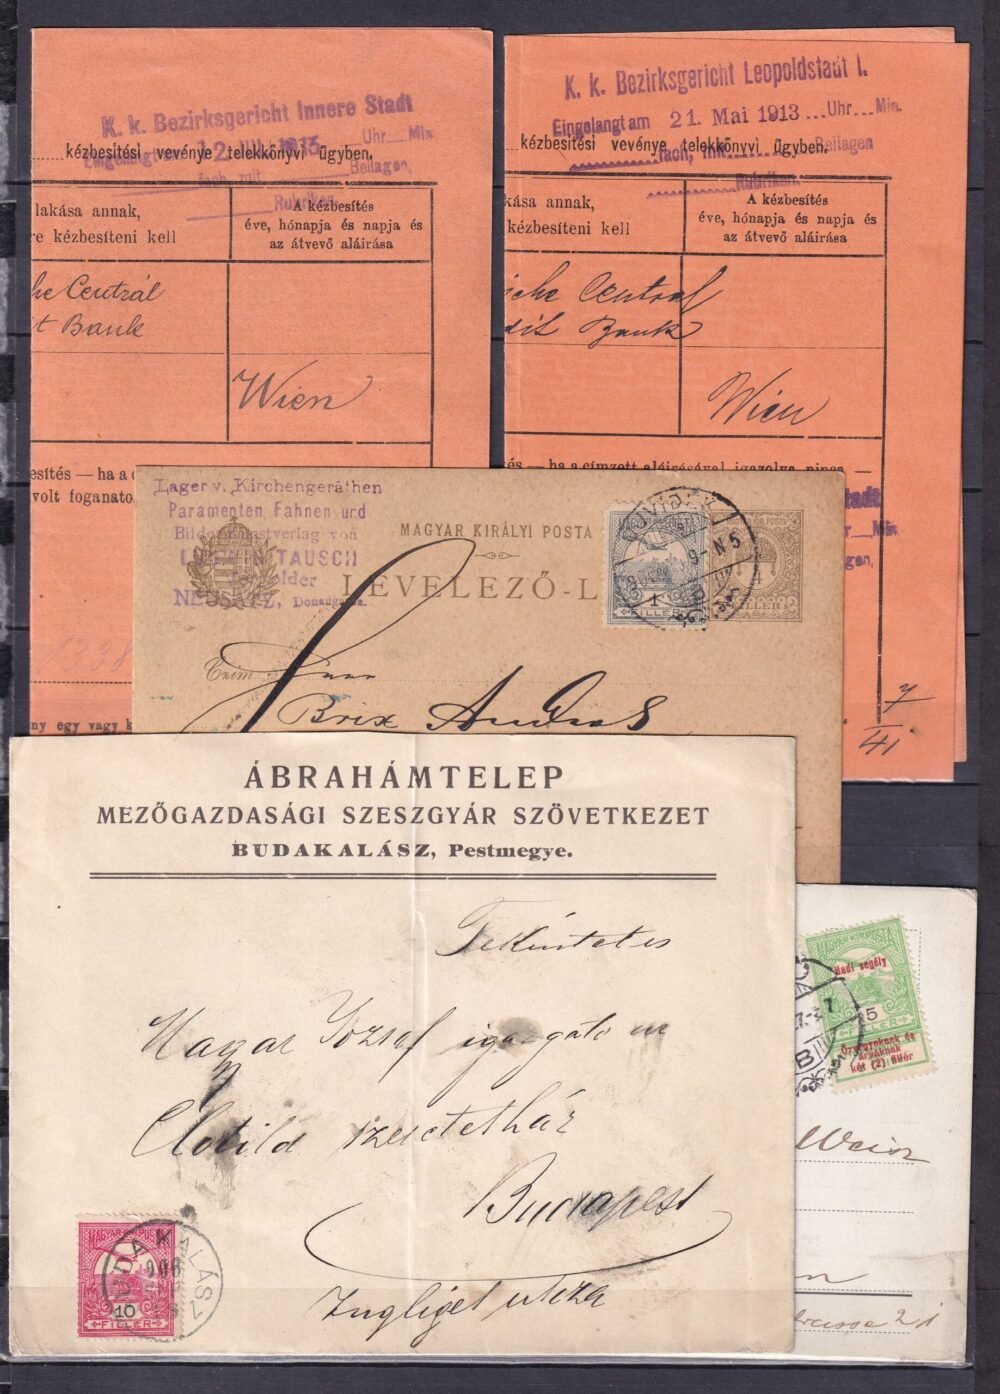 K. k. Bezirksgericht Innere Stadt
Uhr Min
kézbesitési vevénye telekkönyvi ügyben.
fach, mit Beilagen,
Rubriken.
lakása annak,
re kézbesíteni kell
A kézbesítés
éve, hónapja és napja és
az átvevő aláirása
he Central
it Bank
Wien
esítés — ha a c
volt foganato
1338
ny egy vagy k
K. k. Bezirksgericht Leopoldstadt I.
Eingelangt am 21. Mai 1913 ... Uhr ... Min.
kézbesitési vevénye telekkönyvi ügyben.
fach, mit Beilagen
Rubriken.
kása annak,
kézbesíteni kell
A kézbesítés
éve, hónapja és napja és
az átvevő aláirása
ische Central
dit Bank
Wien
és — ha a címzett aláirásával igazolva nincs —
Stadt
Min
gen,
7
41
Lager v. Kirchengeräthen
Paramenten Fahnen und
Bilder Kunstverlag von
TAUSCH
NEUSATZ, Donaugasse.
MAGYAR KIRÁLYI POSTA
LEVELEZŐ-L
MAGYAR KIR. POSTA
1
FILLER
4
FILLER
UJVIDÉK
9-N5
Czím
Brix András
ÁBRAHÁMTELEP
MEZŐGAZDASÁGI SZESZGYÁR SZÖVETKEZET
BUDAKALÁSZ, Pestmegye.
Tekintetes
Magyar József igazgató úr
Clotild szeretetház
Budapest
Zugliget utcza
MAGYAR KIR. POSTA
10
FILLER
BUDAKALÁSZ
906
MAGYAR KIR. POSTA
Hadi segély
5
FILLER
Özvegyeknek és
árváknak
két (2) fillér
B
Weisz
strasse 21